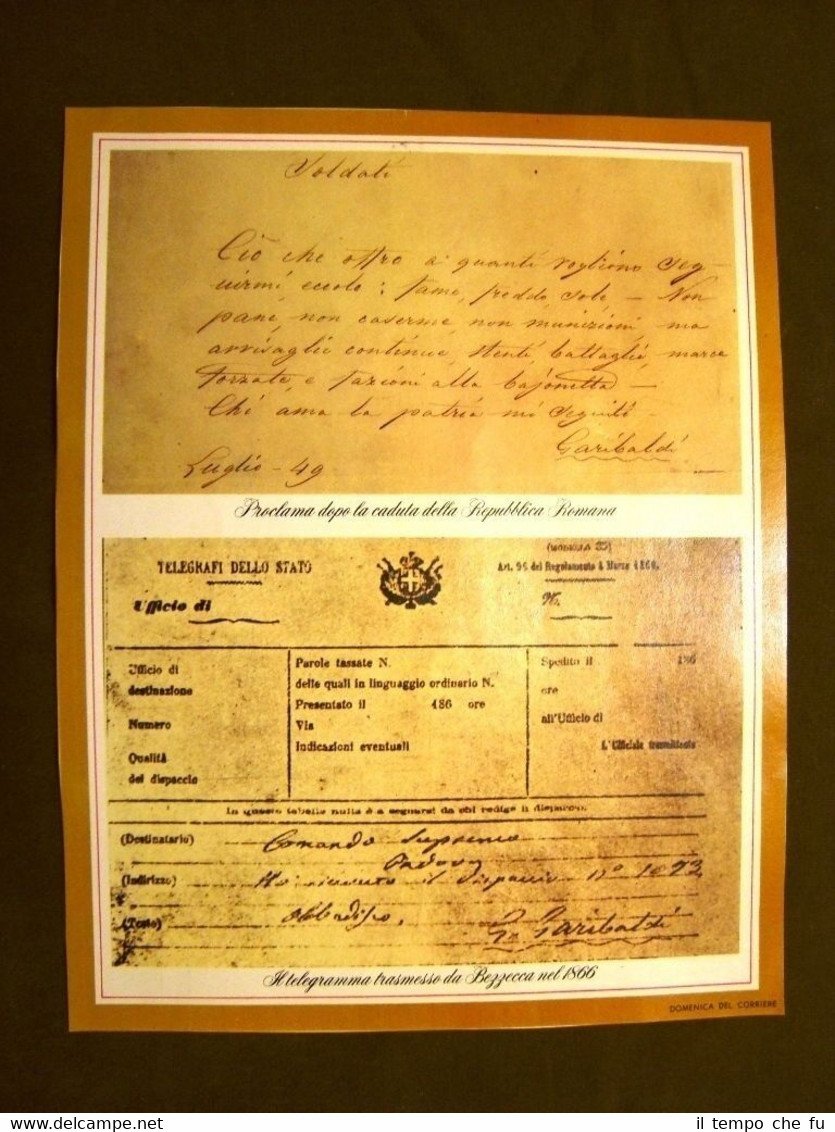 Soldati
Ciò che offro a quanti vogliono seg-
uirmi eccolo: fame, freddo, sole, — Non
pane, non caserme, non munizioni, ma
avvisaglie continue, stenti, battaglie, marce
forzate, e fazioni alla bajonetta —
Chi ama la patria mi seguiti —
Garibaldi
Luglio - 49
Proclama dopo la caduta della Repubblica Romana
TELEGRAFI DELLO STATO
Art. 96 del Regolamento 4 Marzo 1860.
Ufficio di
N.
Ufficio di
destinazione
Numero
Qualità
del dispaccio
Parole tassate N.
delle quali in linguaggio ordinario N.
Presentato il 186 ore
Via
Indicazioni eventuali
Spedito il 186
ore
all'Ufficio di
L'Ufficiale trasmittente
In questa tabella nulla è a segnarsi da chi redige il dispaccio.
(Destinatario) Comando Supremo
Padova
(Indirizzo) Ho ricevuto il dispaccio N° 1073
(Testo) Obbedisco. G. Garibaldi
Il telegramma trasmesso da Bezzecca nel 1866
DOMENICA DEL CORRIERE
www.delcampe.net
il tempo che fu